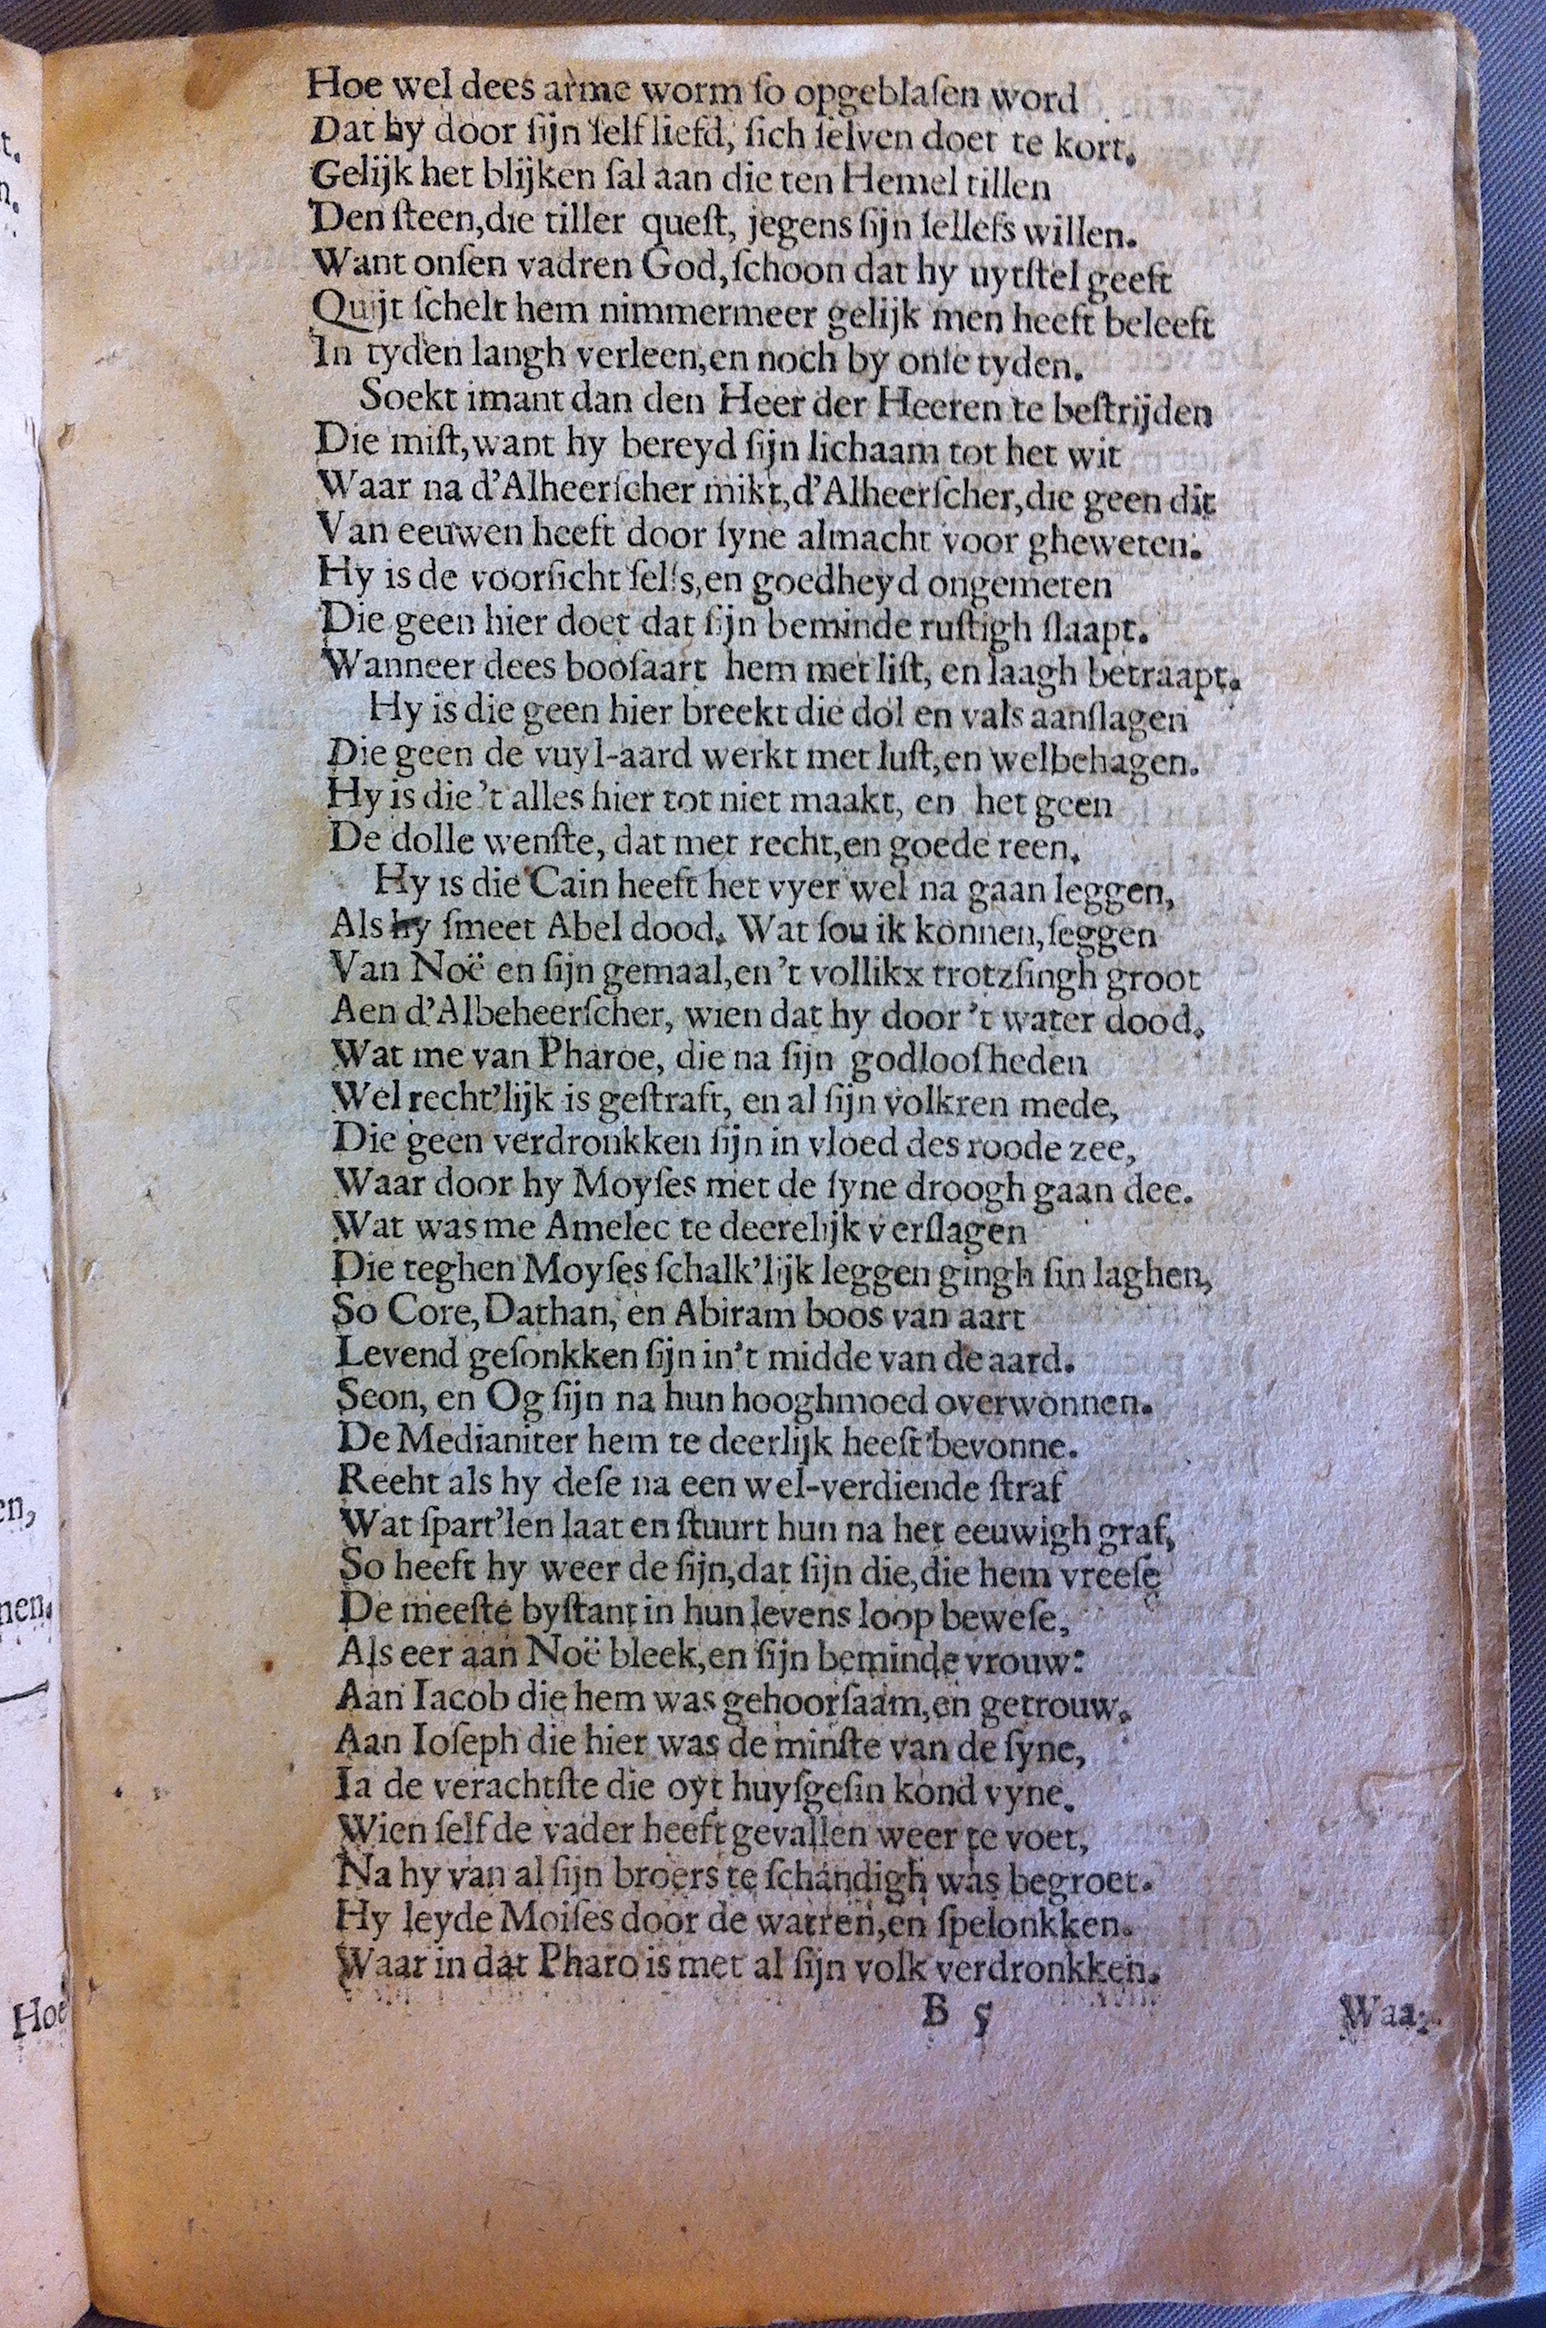 Hoe wel dees arme worm ſo opgeblaſen word
Dat hy door ſijn ſelf liefd, ſich ſelven doet te kort.
Gelijk het blijken ſal aan die ten Hemel tillen
Den ſteen,die tiller queſt, jegens ſijn ſellefs willen.
Want onſen vadren God,ſchoon dat hy uytſtel geeft
Quijt ſchelt hem nimmermeer gelijk men heeft beleeft
In tyden langh verleen,en noch by onſe tyden.
Soekt imant dan den Heer der Heeren te beſtrijden
Die miſt,want hy bereyd ſijn lichaam tot het wit
Waar na d'Alheerſcher mikt,d'Alheerſcher,die geen dit
Van eeuwen heeft door ſyne almacht voor gheweten.
Hy is de voorſicht ſelfs,en goedheyd ongemeten
Die geen hier doet dat ſijn beminde ruſtigh ſlaapt.
Wanneer dees booſaart hem met liſt, en laagh betraapt.
Hy is die geen hier breekt die dol en vals aanſlagen
Die geen de vuyl-aard werkt met luſt,en welbehagen.
Hy is die 't alles hier tot niet maakt, en het geen
De dolle wenſte, dat met recht,en goede reen.
Hy is die Cain heeft het vyer wel na gaan leggen,
Als hy ſmeet Abel dood. Wat ſou ik konnen,ſeggen
Van Noë en ſijn gemaal,en 't vollikx trotzſingh groot
Aen d'Albeheerſcher, wien dat hy door 't water dood.
Wat me van Pharoe, die na ſijn godlooſheden
Wel recht'lijk is geſtraft, en al ſijn volkren mede,
Die geen verdronkken ſijn in vloed des roode zee,
Waar door hy Moyſes met de ſyne droogh gaan dee.
Wat was me Amelec te deerelijk verſlagen
Die teghen Moyſes ſchalk'lijk leggen gingh ſin laghen,
So Core,Dathan, en Abiram boos van aart
Levend geſonkken ſijn in't midde van de aard.
Seon, en Og ſijn na hun hooghmoed overwonnen.
De Medianiter hem te deerlijk heeft bevonne.
Reeht als hy deſe na een wel-verdiende ſtraf
Wat ſpart'len laat en ſtuurt hun na het eeuwigh graf,
So heeft hy weer de ſijn,dat ſijn die,die hem vreeſe
De meeſte byſtant in hun levens loop beweſe,
Als eer aan Noë bleek,en ſijn beminde vrouw:
Aan Iacob die hem was gehoorſaam,en getrouw.
Aan Ioſeph die hier was de minſte van de ſyne,
Ia de verachtſte die oyt huyſgeſin kond vyne.
Wien ſelf de vader heeft gevallen weer te voet,
Na hy van al ſijn broers te ſchandigh was begroet.
Hy leyde Moiſes door de watren,en ſpelonkken.
Waar in dat Pharo is met al ſijn volk verdronkken.
B 5 Waar
t.
n.
en,
nen.
Hoe